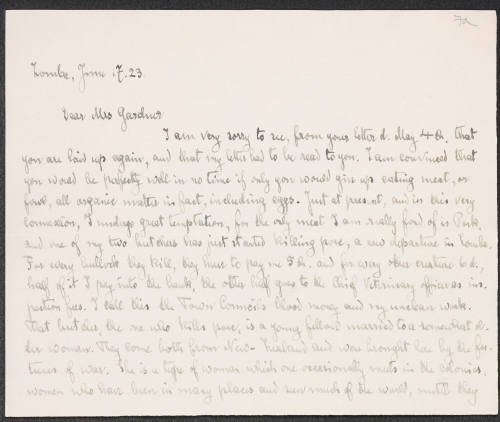 7a
Zomba, June 17. 23.
Dear Mrs Gardner
I am very sorry to see, from your letter d. May 4th, that
you are laid up again, and that my letter had to be read to you. I am convinced that
you would be perfectly well in no time if only you would give up eating meat, or
fowl, all organic matter in fact, including eggs. Just at present, and in this very
connexion, I undergo great temptation, for the only meat I am really fond of is Pork,
and one of my two butchers has just started killing some, a new departure in Zomba.
For every bullock they kill, they have to pay me 5 sh. and for every other creature 6 d.,
half of it I pay into the bank, the other half goes to the Chief Veterinary officer as ins-
pection fees. I call this the Town Council's blood money and my unclean work.
That butcher, the one who kills some, is a young fellow married to a somewhat ol-
der woman. They come both from New-Zealand and was brought here by the for-
tunes of war. She is a type of woman which one occasionally meets in the colonies,
women who have been in many places and seen much of the world, until they